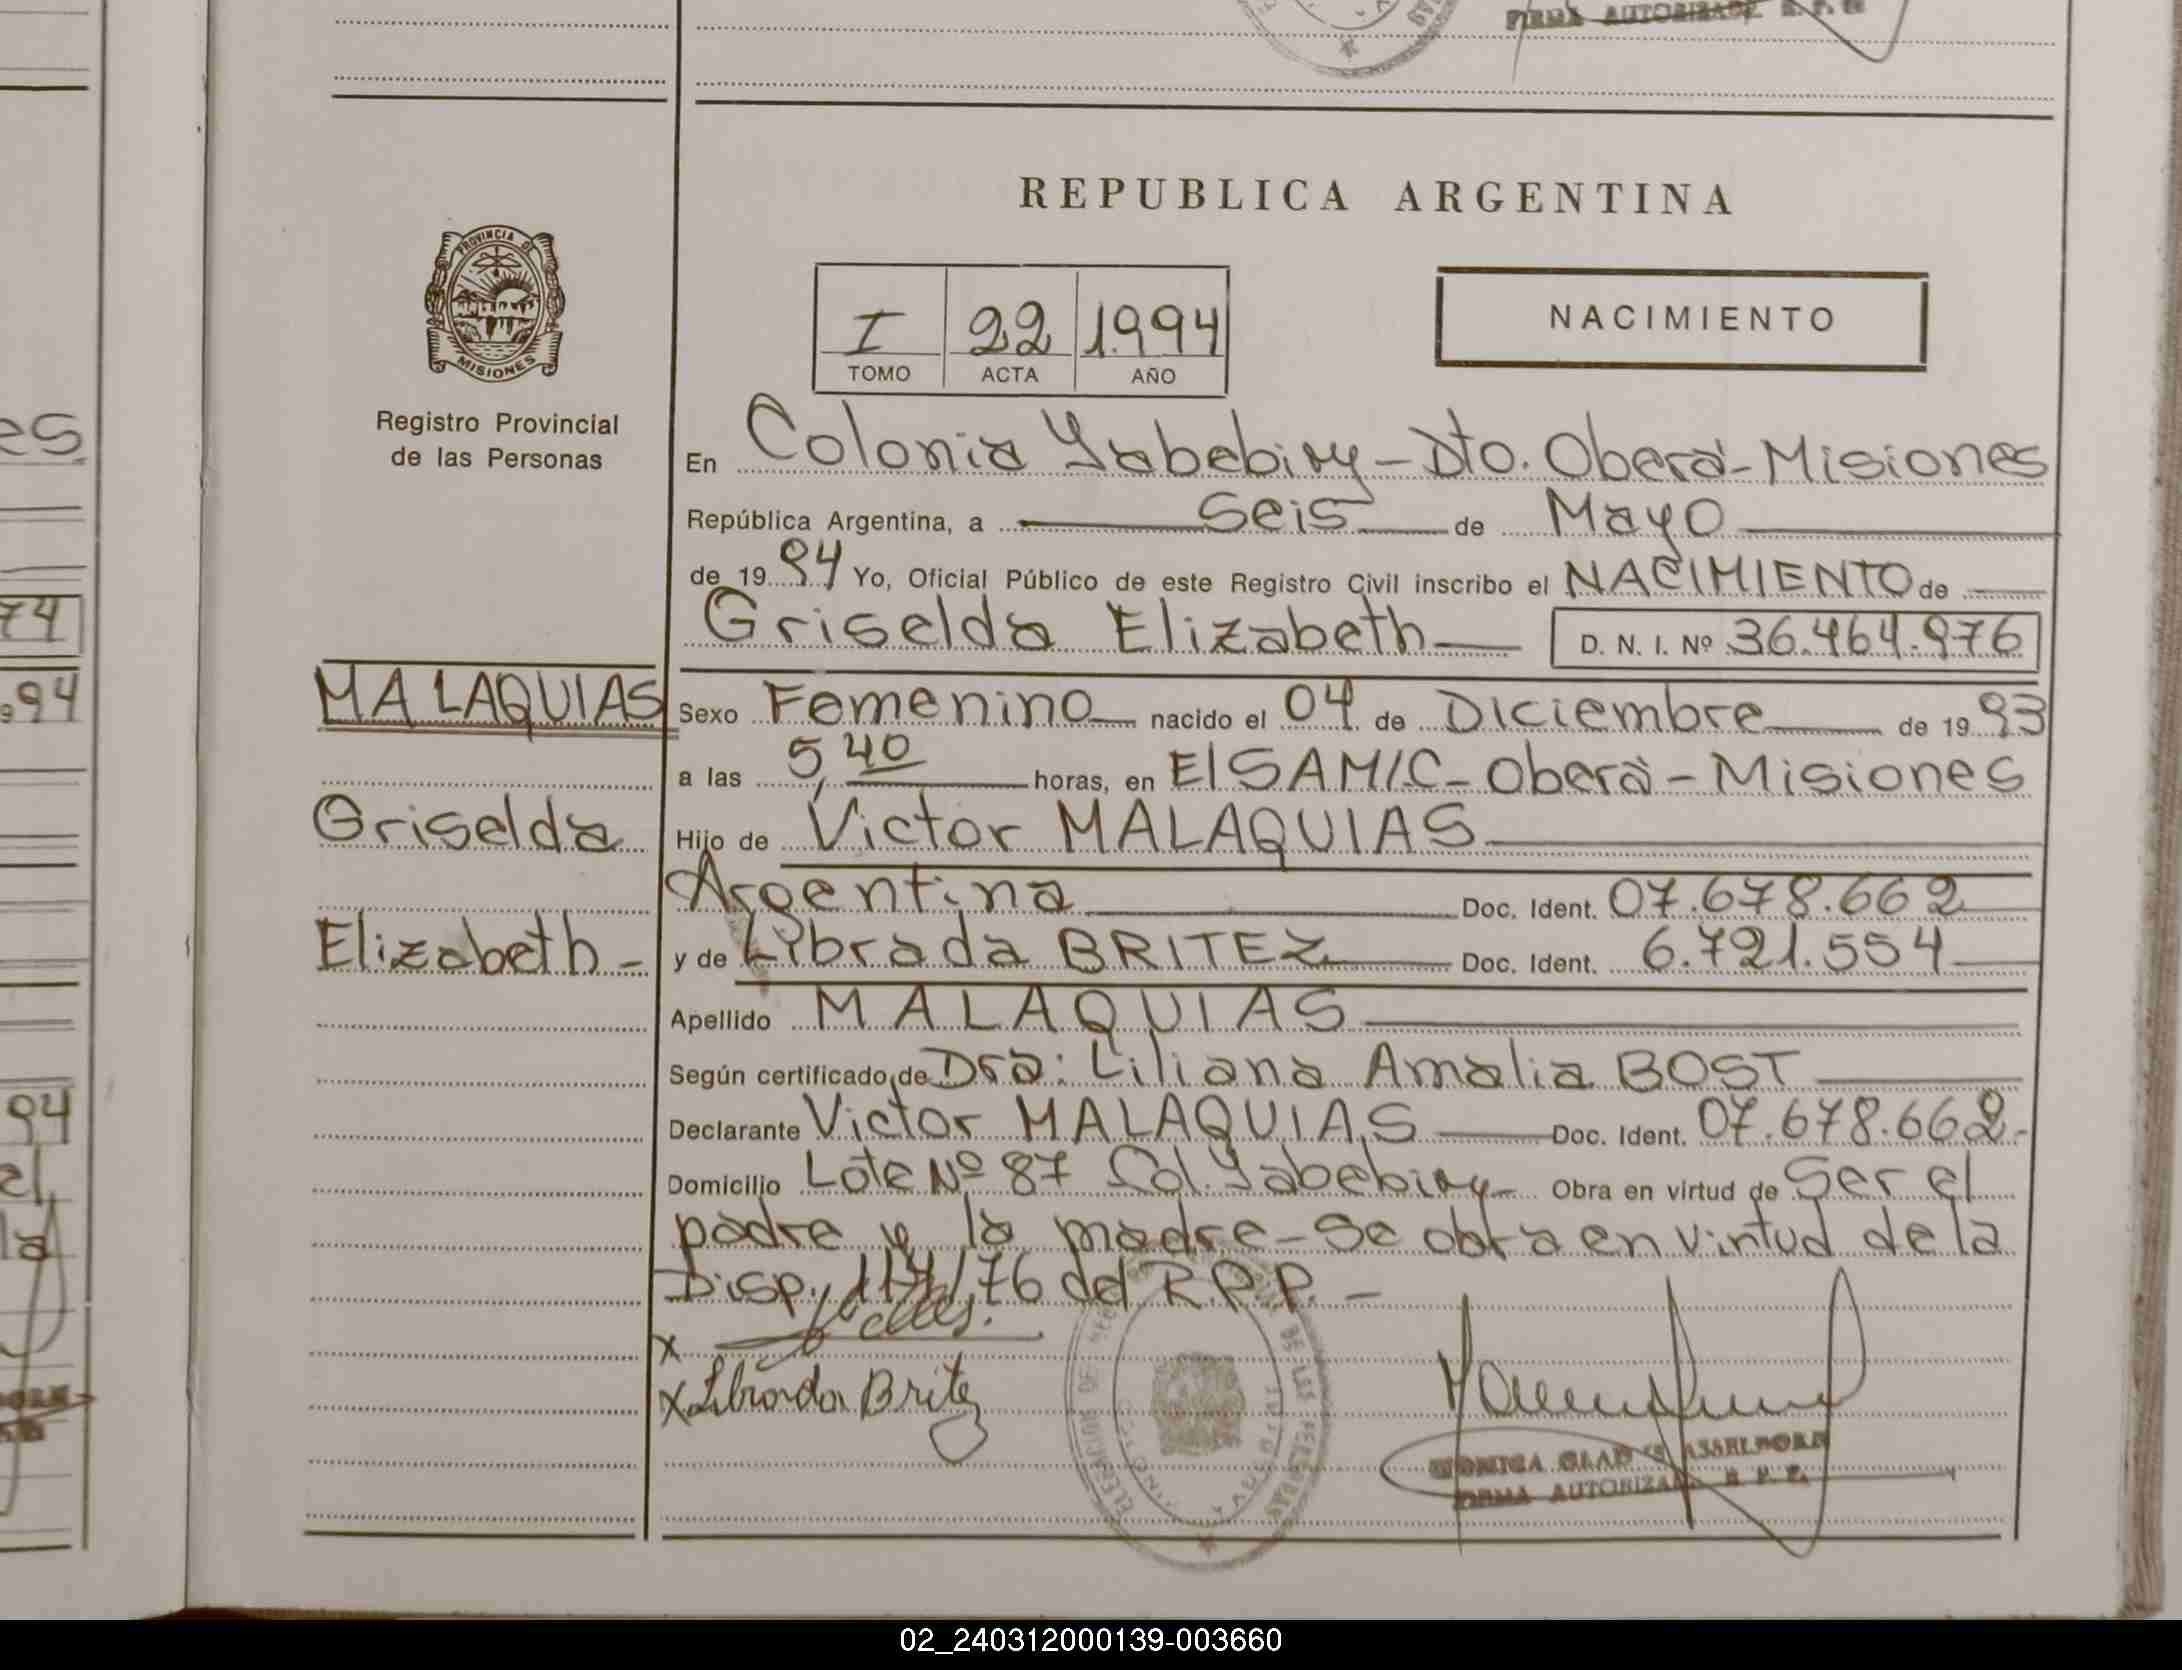 FIRMA AUTORIZADA R. P. P.
REPUBLICA ARGENTINA
PROVINCIA DE
MISIONES
Registro Provincial
de las Personas
I 22 1994
TOMO ACTA AÑO
NACIMIENTO
En Colonia Yabebiry - Dto. Oberá - Misiones
República Argentina, a seis de Mayo
de 1994 Yo, Oficial Público de este Registro Civil inscribo el NACIMIENTO de
Griselda Elizabeth D. N. I. Nº 36.464.976
MALAQUIAS
Sexo Femenino nacido el 04 de Diciembre de 1993
a las 5,40 horas, en El SAMIC - Oberà - Misiones
Griselda
Hijo de Victor MALAQUIAS
Argentina Doc. Ident. 07.678.662
Elizabeth -
y de Librada BRITEZ Doc. Ident. 6.721.554
Apellido MALAQUIAS
Según certificado de Dra: Liliana Amalia BOST
Declarante Victor MALAQUIAS Doc. Ident. 07.678.662.-
Domicilio Lote Nº 87 Col. Yabebiry - Obra en virtud de Ser el
padre y la madre - Se obra en virtud de la
Disp. /76 del R.P.P. -
x
x Librada Britez
FIRMA AUTORIZADA R. P. P.
es
74
94
94
el
la
02_240312000139-003660